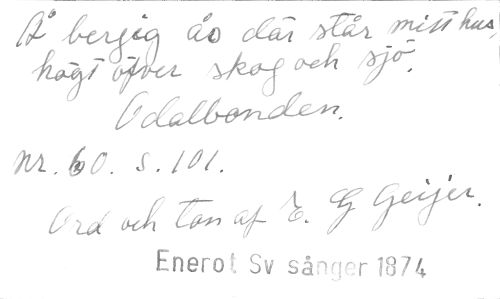 Å bergig ås där står mitt hus,
högt öfver skog och sjö.
Odalbonden.
nr. 60. s. 101.
Ord och ton af E. G Geijer.
Enerot Sv sånger 1874